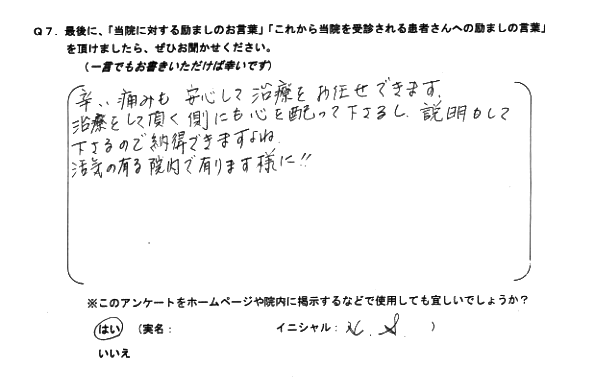 Q7. 最後に、「当院に対する励ましのお言葉」「これから当院を受診される患者さんへの励ましの言葉」
を頂けましたら、ぜひお聞かせください。
(一言でもお書きいただけば幸いです)
辛い痛みも 安心して治療をお任せできます.
治療をして頂く側にも心を配って下さるし、説明かして
下さるので納得できますよね.
活気の有る院内で有ります様に!!
※このアンケートをホームページや院内に掲示するなどで使用しても宜しいでしょうか?
はい (実名: イニシャル: S. )
いいえ